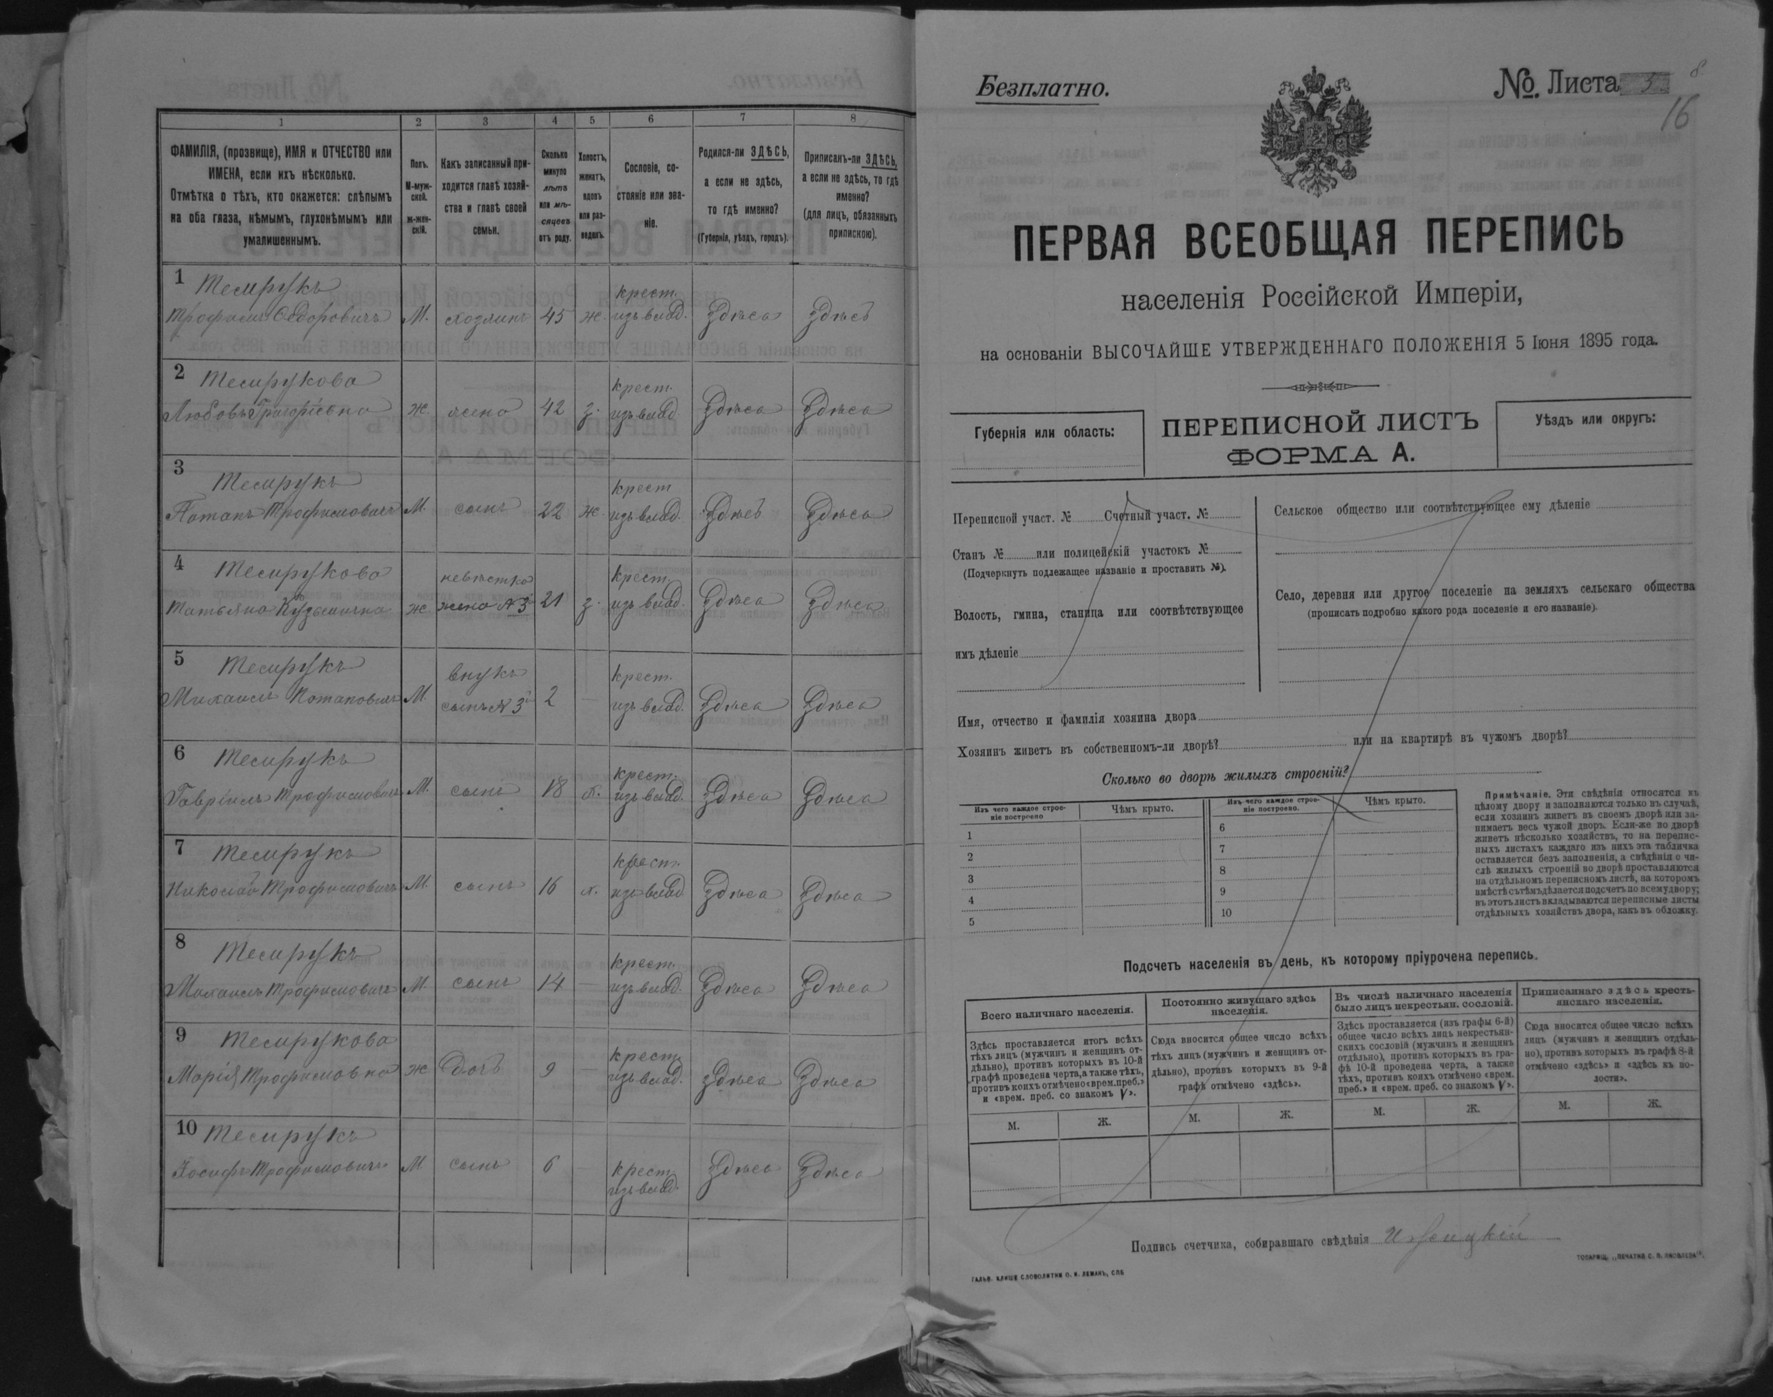 1 2 3 4 5 6 7 8
ФАМИЛІЯ, (прозвище), ИМЯ и ОТЧЕСТВО или
ИМЕНА, если ихъ нѣсколько.
Отмѣтка о тѣхъ, кто окажется: слѣпымъ
на оба глаза, нѣмымъ, глухонѣмымъ или
умалишеннымъ.
Полъ.
М-муж-
ской.
ж-жен-
скій.
Какъ записанный при-
ходится главѣ хозяй-
ства и главѣ своей
семьи.
Сколько
минуло
лѣтъ
или мѣ-
сяцевъ
отъ роду.
Холостъ,
женатъ,
вдовъ
или раз-
веденъ.
Сословіе, со-
стояніе или зва-
ніе.
Родился-ли ЗДѢСЬ,
а если не здѣсь,
то гдѣ именно?
(Губернія, уѣздъ, городъ).
Приписанъ-ли ЗДѢСЬ,
а если не здѣсь, то гдѣ
именно?
(для лицъ, обязанныхъ
припискою).
1 Темрукъ крест.
Трофимъ Ѳедоровичъ М. хозяинъ 45 ж. изъ влад. Здѣсь Здѣсь
2 Темрукова крест.
Любовь Григорiевна ж жена 42 з. изъ влад Здѣсь Здѣсь
3 Темрукъ крест
Потапъ Трофимовичъ М сынъ 22 ж. изъ влад. Здѣсь Здѣсь
4 Темрукова невѣстка крест.
Татьяна Кузьминична ж жена № 3 21 з. изъ влад. Здѣсь Здѣсь
5 Темрукъ внукъ крест.
Михаилъ Потаповичъ М сынъ № 3 2 — изъ влад. Здѣсь Здѣсь
6 Темрукъ крест.
Гавріилъ Трофимовичъ М. сынъ 18 х. изъ влад. Здѣсь Здѣсь
7 Темрукъ крест.
Николай Трофимовичъ М. сынъ 16 х. изъ влад Здѣсь Здѣсь
8 Темрукъ крест.
Михаилъ Трофимовичъ М сынъ 14 — изъ влад. Здѣсь Здѣсь
9 Темрукова крест.
Марія Трофимовна ж Дочь 9 — изъ влад. Здѣсь Здѣсь
10 Темрукъ
Іосифъ Трофимовичъ М сынъ 6 — крест. Здѣсь Здѣсь
изъ влад.
Безплатно.
№ Листа 5
8.
16
ПЕРВАЯ ВСЕОБЩАЯ ПЕРЕПИСЬ
населенія Россійской Имперіи,
на основаніи ВЫСОЧАЙШЕ УТВЕРЖДЕННАГО ПОЛОЖЕНІЯ 5 Іюня 1895 года.
Губернія или область:
ПЕРЕПИСНОЙ ЛИСТЪ
ФОРМА А.
Уѣздъ или округъ:
Переписной участ. № Счетный участ. №
Станъ № или полицейскій участокъ №
(Подчеркнуть подлежащее названіе и проставить №).
Волость, гмина, станица или соотвѣтствующее
имъ дѣленіе
Сельское общество или соотвѣтствующее ему дѣленіе
Село, деревня или другое поселеніе на земляхъ сельскаго общества
(прописать подробно какого рода поселеніе и его названіе).
Имя, отчество и фамилія хозяина двора
Хозяинъ живетъ въ собственномъ-ли дворѣ? или на квартирѣ въ чужомъ дворѣ?
Сколько во дворѣ жилыхъ строеній?
Изъ чего каждое строе-
ніе построено
Чѣмъ крыто.
Изъ чего каждое строе-
ніе построено.
Чѣмъ крыто.
1 6
2 7
3 8
4 9
5 10
Примѣчаніе. Эти свѣдѣнія относятся къ
цѣлому двору и заполняются только въ случаѣ,
если хозяинъ живетъ въ своемъ дворѣ или за-
нимаетъ весь чужой дворъ. Если-же во дворѣ
живетъ нѣсколько хозяйствъ, то на перепис-
ныхъ листахъ каждаго изъ нихъ эта табличка
оставляется безъ заполненія, а свѣдѣнія о чи-
слѣ жилыхъ строеній во дворѣ проставляются
на отдѣльномъ переписномъ листѣ, на которомъ
вмѣстѣ съ тѣмъ дѣлается подсчетъ по всему двору;
въ этотъ листъ вкладываются переписные листы
отдѣльныхъ хозяйствъ двора, какъ въ обложку.
Подсчетъ населенія въ день, къ которому пріурочена перепись.
Всего наличнаго населенія.
Здѣсь проставляется итогъ всѣхъ
тѣхъ лицъ (мужчинъ и женщинъ от-
дѣльно), противъ которыхъ въ 10-й
графѣ проведена черта, а также тѣхъ,
противъ коихъ отмѣчено «врем. преб.»
и «врем. преб. со знакомъ V».
Постоянно живущаго здѣсь
населенія.
Сюда вносится общее число всѣхъ
тѣхъ лицъ (мужчинъ и женщинъ от-
дѣльно), противъ которыхъ въ 9-й
графѣ отмѣчено «здѣсь».
Въ числѣ наличнаго населенія
было лицъ некрестьян. сословій.
Здѣсь проставляется (изъ графы 6-й)
общее число всѣхъ лицъ некрестьян-
скихъ сословій (мужчинъ и женщинъ
отдѣльно), противъ которыхъ въ гра-
фѣ 10-й проведена черта, а также
тѣхъ, противъ коихъ отмѣчено «врем.
преб.» и «врем. преб. со знакомъ V».
Приписаннаго здѣсь кресть-
янскаго населенія.
Сюда вносится общее число всѣхъ
лицъ (мужчинъ и женщинъ отдѣль-
но), противъ которыхъ въ графѣ 8-й
отмѣчено «здѣсь» и «здѣсь къ во-
лости».
М. Ж. М. Ж. М. Ж. М. Ж.
Подпись счетчика, собиравшаго свѣдѣнія
ГАЛЬВ. КЛИШЕ СЛОВОЛИТНИ О. И. ЛЕМАНЪ, СПБ.
ТОВАРИЩ. „ПЕЧАТНЯ С. П. ЯКОВЛЕВА“.